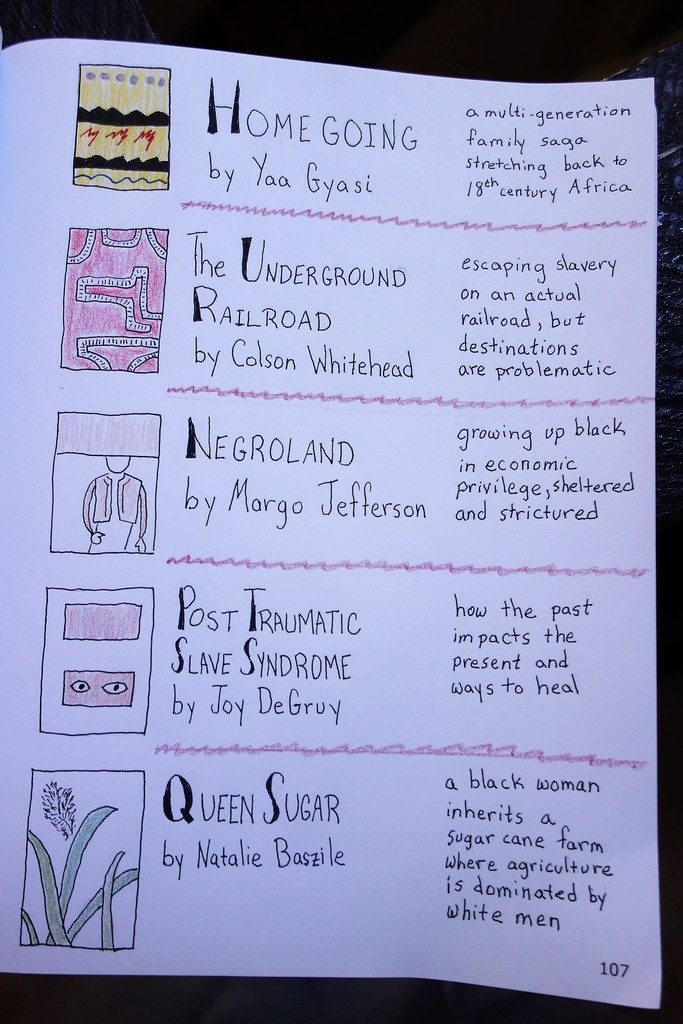 HOMEGOING
by Yaa Gyasi
a multi-generation
family saga
stretching back to
18th century Africa
The UNDERGROUND
RAILROAD
by Colson Whitehead
escaping slavery
on an actual
railroad, but
destinations
are problematic
NEGROLAND
by Margo Jefferson
growing up black
in economic
privilege, sheltered
and strictured
POST TRAUMATIC
SLAVE SYNDROME
by Joy DeGruy
how the past
impacts the
present and
ways to heal
QUEEN SUGAR
by Natalie Baszile
a black woman
inherits a
sugar cane farm
where agriculture
is dominated by
white men
107